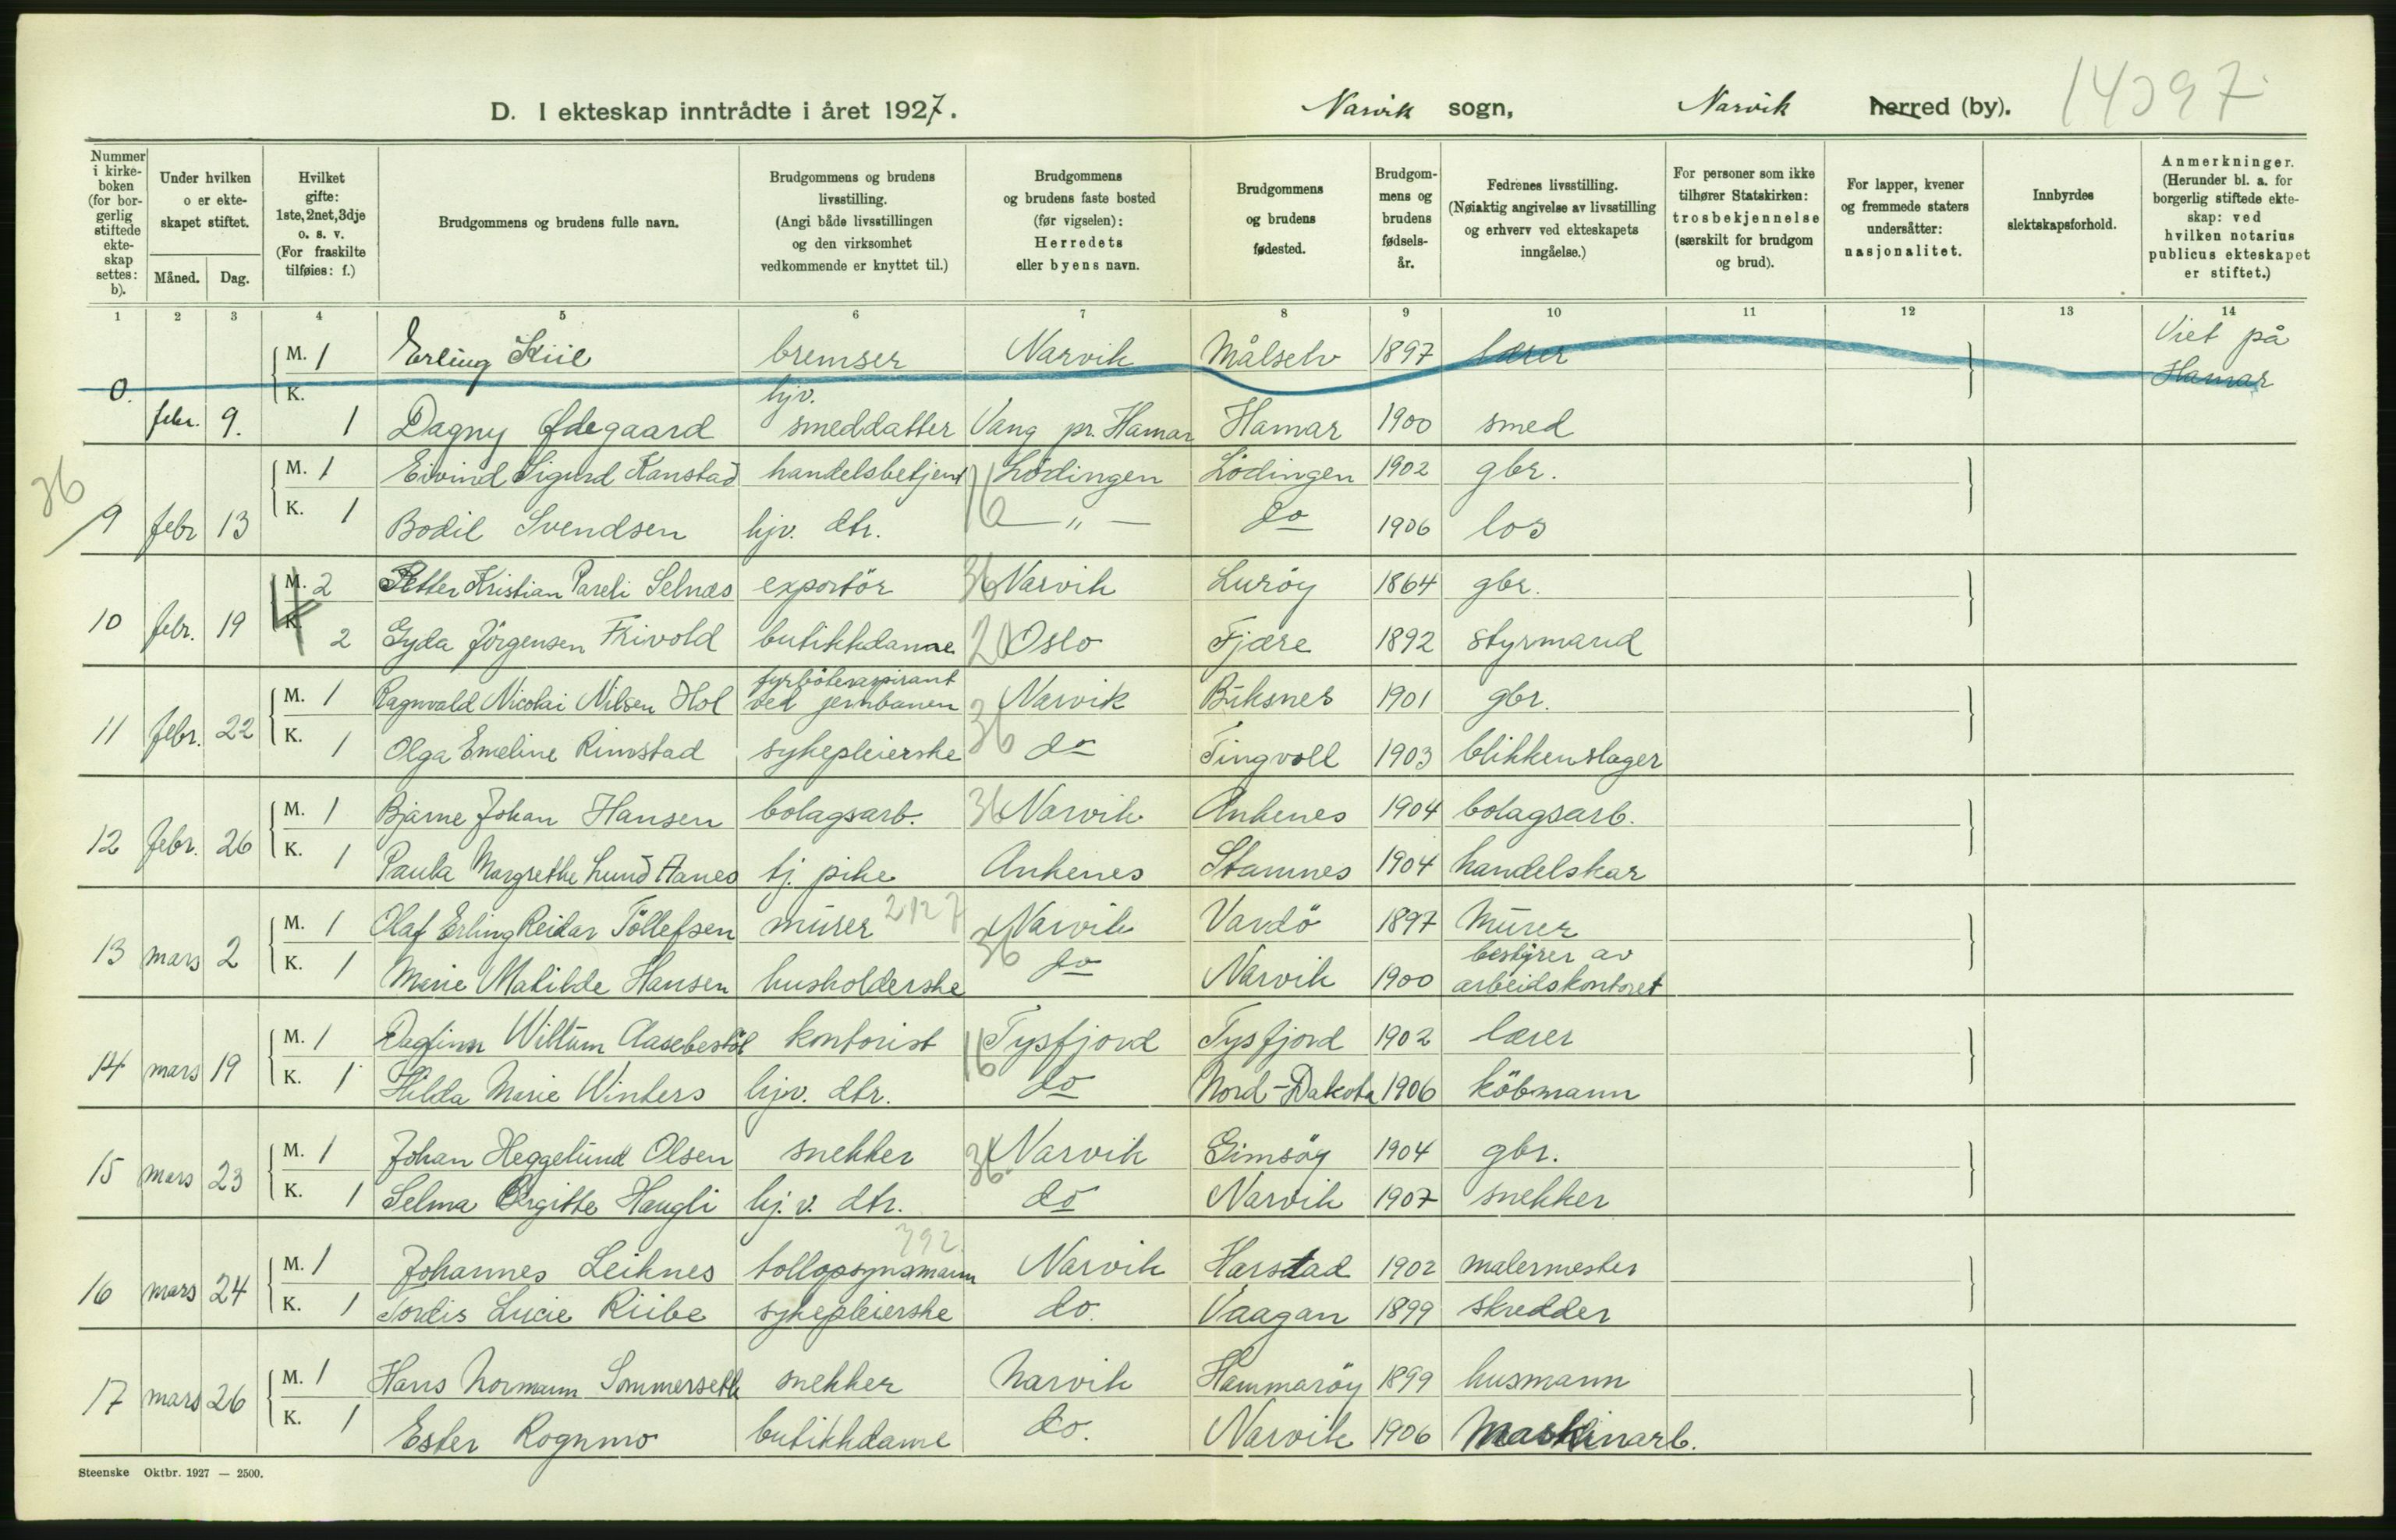 D. I ekteskap inntrådte i året 1927. Narvik sogn, Narvik herred (by). 14397
Nummer i kirkeboken (for borgerlig stiftede ekteskap settes: b).
Under hvilken o er ekteskapet stiftet.
Måned. Dag.
Hvilket gifte: 1ste, 2net, 3dje o. s. v. (For fraskilte tilføies: f.)
Brudgommens og brudens fulle navn.
Brudgommens og brudens livsstilling. (Angi både livsstillingen og den virksomhet vedkommende er knyttet til.)
Brudgommens og brudens faste bosted (før vigselen): Herredets eller byens navn.
Brudgommens og brudens fødested.
Brudgommens og brudens fødselsår.
Fedrenes livsstilling. (Nøiaktig angivelse av livsstilling og erhverv ved ekteskapets inngåelse.)
For personer som ikke tilhører Statskirken: trosbekjennelse (særskilt for brudgom og brud).
For lapper, kvener og fremmede staters undersåtter: nasjonalitet.
Innbyrdes slektskapsforhold.
Anmerkninger. (Herunder bl. a. for borgerlig stiftede ekteskap: ved hvilken notarius publicus ekteskapet er stiftet.)
1 2 3 4 5 6 7 8 9 10 11 12 13 14
M. 1 Erling Kiil bremser Narvik Målselv 1897 lærer Viet på Hamar
0. febr. 9. K. 1 Dagny Ødegaard hjv. smeddatter Vang pr. Hamar Hamar 1900 smed
36
M. 1 Eivind Sigurd Kanstad handelsbetjent Lödingen Lödingen 1902 gbr.
9 febr 13 K. 1 Bodil Svendsen hjv. dtr. 16 — " — do 1906 los
M. 2 Petter Kristian Pareli Selnæs exportör 36 Narvik Luröy 1864 gbr.
10 febr. 19 K. 2 Gyda Jörgensen Frivold butikkdame 20 Oslo Fjære 1892 styrmand
M. 1 Ragnvald Nicolai Nilsen Hol fyrböteraspirant ved jernbanen Narvik Buksnes 1901 gbr.
11 febr. 22 K. 1 Olga Emeline Rimstad sykepleierske 36 do Tingvoll 1903 blikkenslager
M. 1 Bjarne Johan Hansen bolagsarb. 36 Narvik Ankenes 1904 bolagsarb.
12 febr. 26 K. 1 Paula Margrethe Lund Aanes tj. pike Ankenes Stamnes 1904 handelskar
M. 1 Olaf Erling Reidar Töllefsen murer 2127 Narvik Vardö 1897 Murer
13 mars 2 K. 1 Marie Matilde Hansen husholderske 36 do Narvik 1900 bestyrer av arbeidskontoret
M. 1 Dagfinn Willum Aasebestöl kontorist Tysfjord Tysfjord 1902 lærer
14 mars 19 K. 1 Hilda Marie Winters hjv. dtr. 16 do Nord-Dakota 1906 köbmann
M. 1 Johan Heggelund Olsen snekker Narvik Gimsöy 1904 gbr.
15 mars 23 K. 1 Selma Birgitte Haugli hj. v. dtr. 36 do Narvik 1907 snekker
M. 1 Johannes Leiknes tollopsynsmann 392 Narvik Harstad 1902 malermester
16 mars 24 K. 1 Tordis Lucie Riibe sykepleierske do. Vaagan 1899 skredder
M. 1 Hans Normann Sommerseth snekker Narvik Hammaröy 1899 husmann
17 mars 26 K. 1 Ester Rognmo butikkdame do. Narvik 1906 Maskinarb.
Steenske Oktbr. 1927 — 2500.